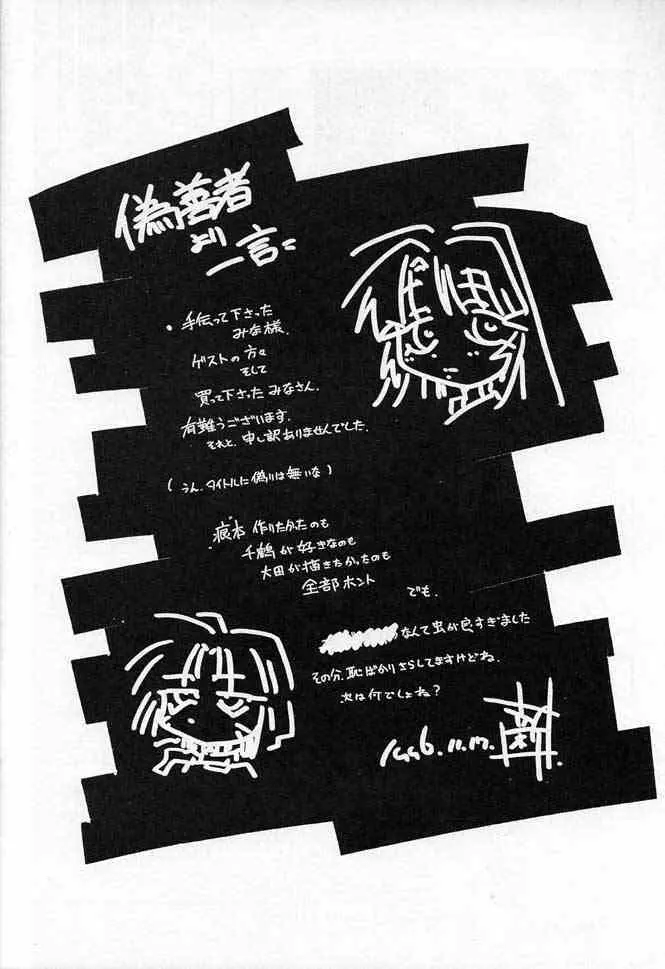 偽善者
より
一言に
・手伝って下さった
みな様.
ゲストの方々
そして
買って下さったみなさん.
有難うございます.
それと、申し訳ありませんでした.
(うん.タイトルに偽りは無いな)
痕本 作りたかったのも
千鶴が好きなのも
太田が描きたかったのも
全部ホント
でも.
なんて虫が良すぎました
その分、恥ばかりさらしてますけどね.
次は何でしょね?
1996.11.17.